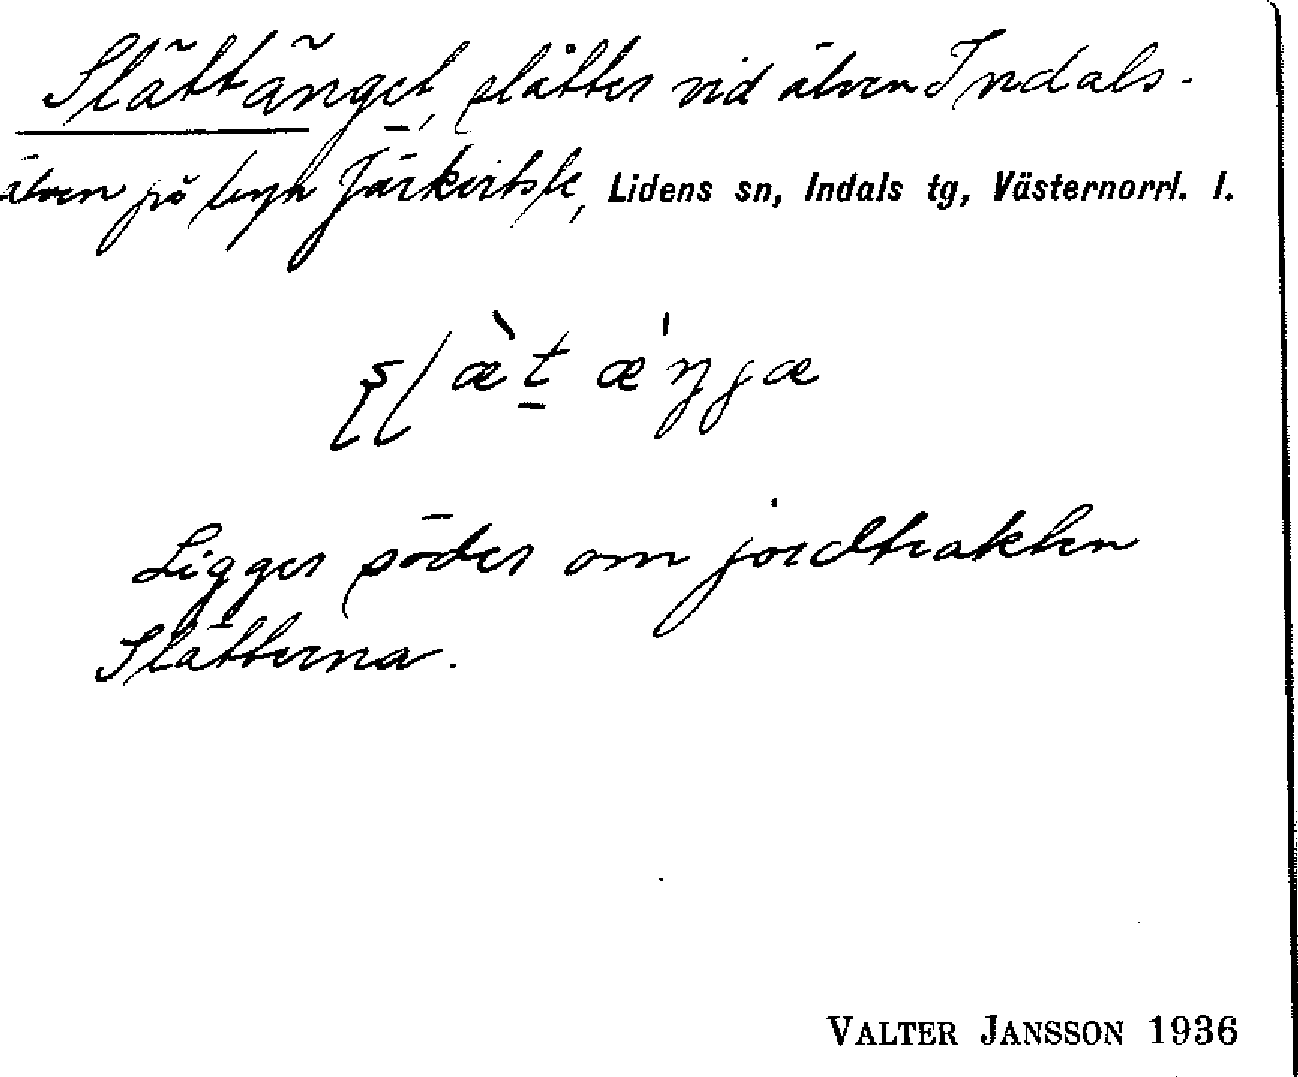 Slättänget, slåtter vid älven Indals-
älven på byn Järkvitsle, Lidens sn, Indals tg, Västernorrl. l.
ʂɭæ̀t̲ æ̍ŋjæ
Ligger söder om jordtrakten
Slätterna.
VALTER JANSSON 1936